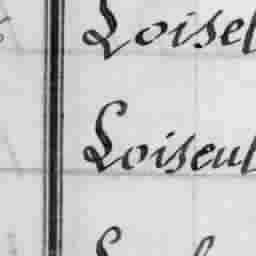 Loisel
Loiseul